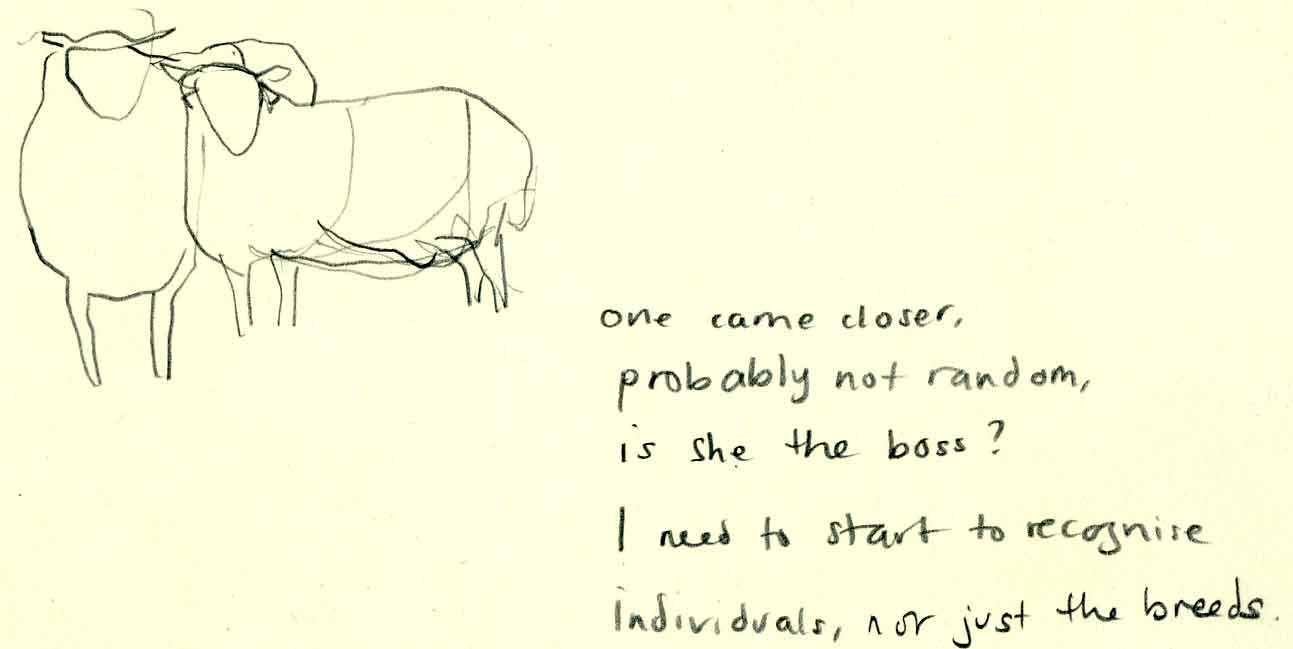 one came closer,
probably not random,
is she the boss?
I need to start to recognise
individuals, not just the breeds.